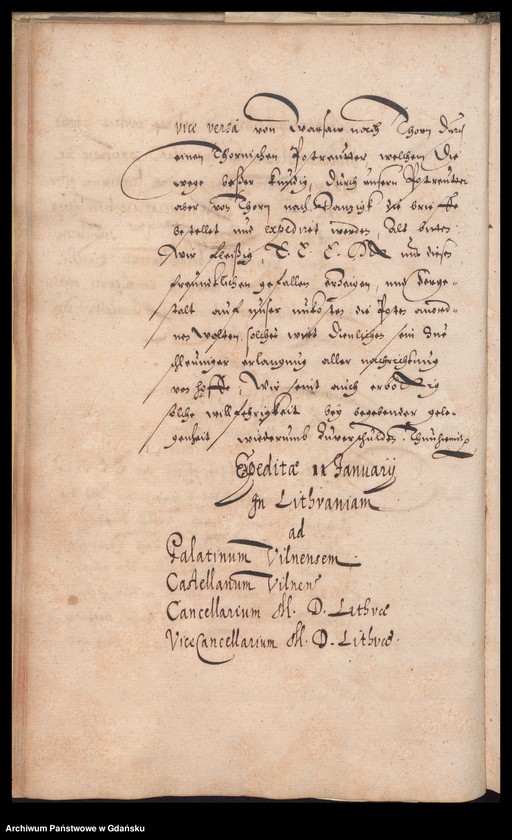 vice versa von Warsaw nach Thorn durch
einen Thornischen Postreutter, welchem die
wege besser kundig, durch unsern Postreutter
aber von Thorn nach Danzigk die brieffe
bestellet und expediret werden, Alß bitten
Wir fleißig, E. E. E. uns diesen
freundtlichen gefallen erzeigen, und derge-
stalt auff unser unkosten die Posten anord-
nen wolten, solches wirt dienlichen sein zue
schleuniger erlangung aller nachrichtung
von hoffe, Wir seint auch erböttig
solche willfehrigkeit bey begebender gele-
genheit wiederumb zuverschulden.
Expeditæ 11 January
In Lithvaniam
ad
Palatinum Vilnensem
Castellanum Vilnens
Cancellarium M. D. Lithvæ
ViceCancellarium M. D. Lithvæ.
Archiwum Państwowe w Gdańsku